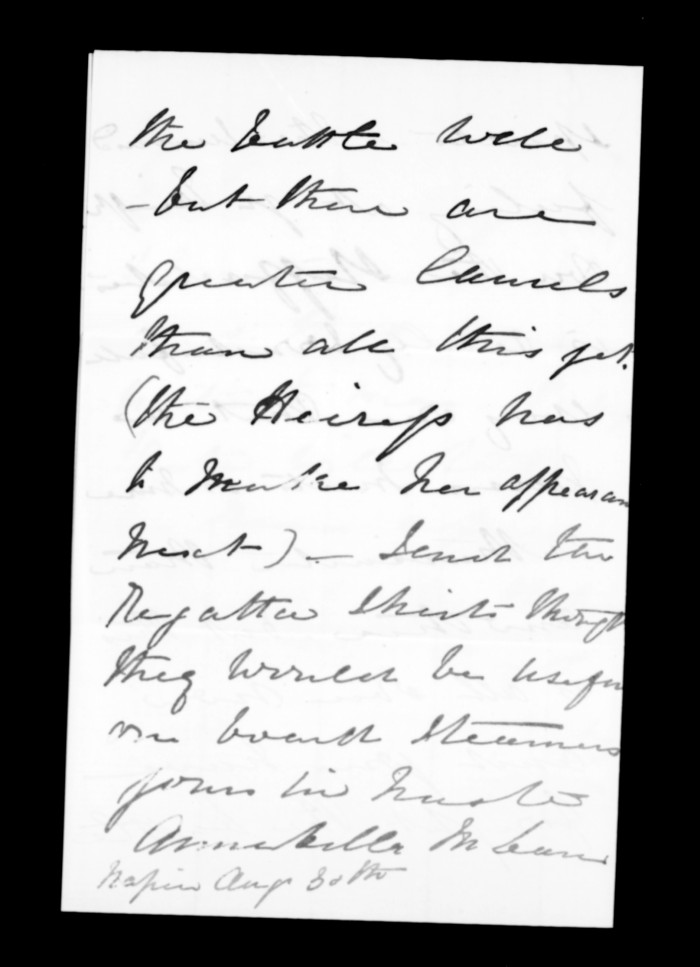 the battle well
- but there are
greater laurels
than all this yet.
(the Heiress has
to make her appearan
next) - Send the
Regatta Shirts thought
they would be usefu
on board Steamers
yours in haste
Annabella McLean
Napier Augt 30th